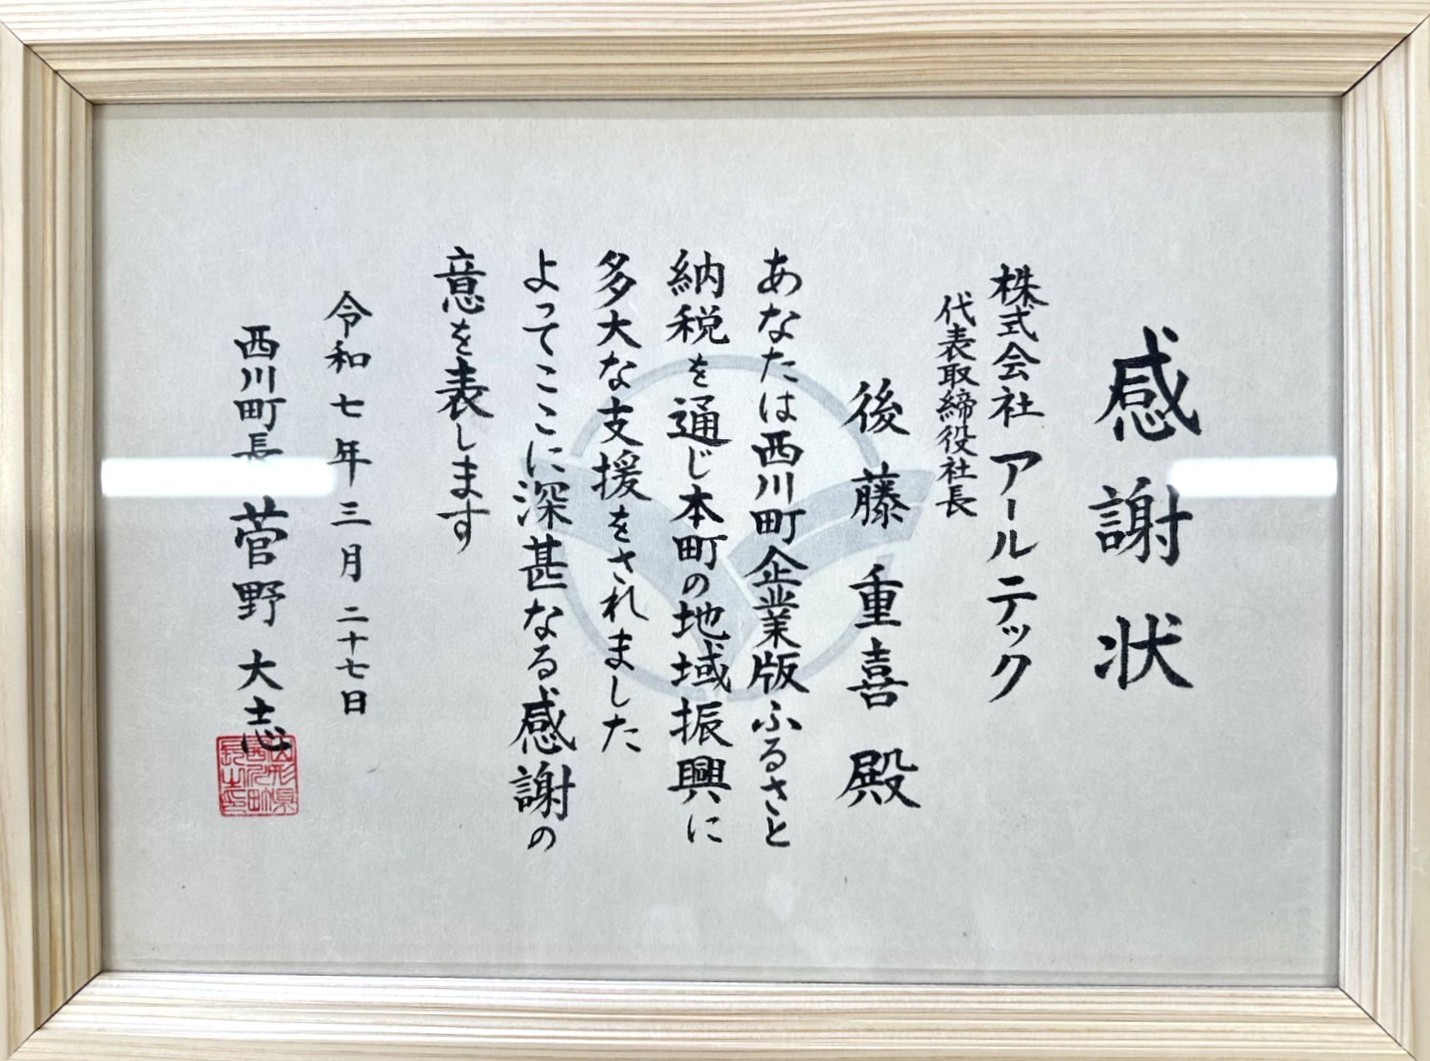 感謝状
株式会社 アールテック
代表取締役社長
後藤重喜殿
あなたは西川町企業版ふるさと
納税を通じ本町の地域振興に
多大な支援をされました
よってここに深甚なる感謝の
意を表します
令和七年三月二十七日
西川町長 菅野大志
山形県
西川町
長之印